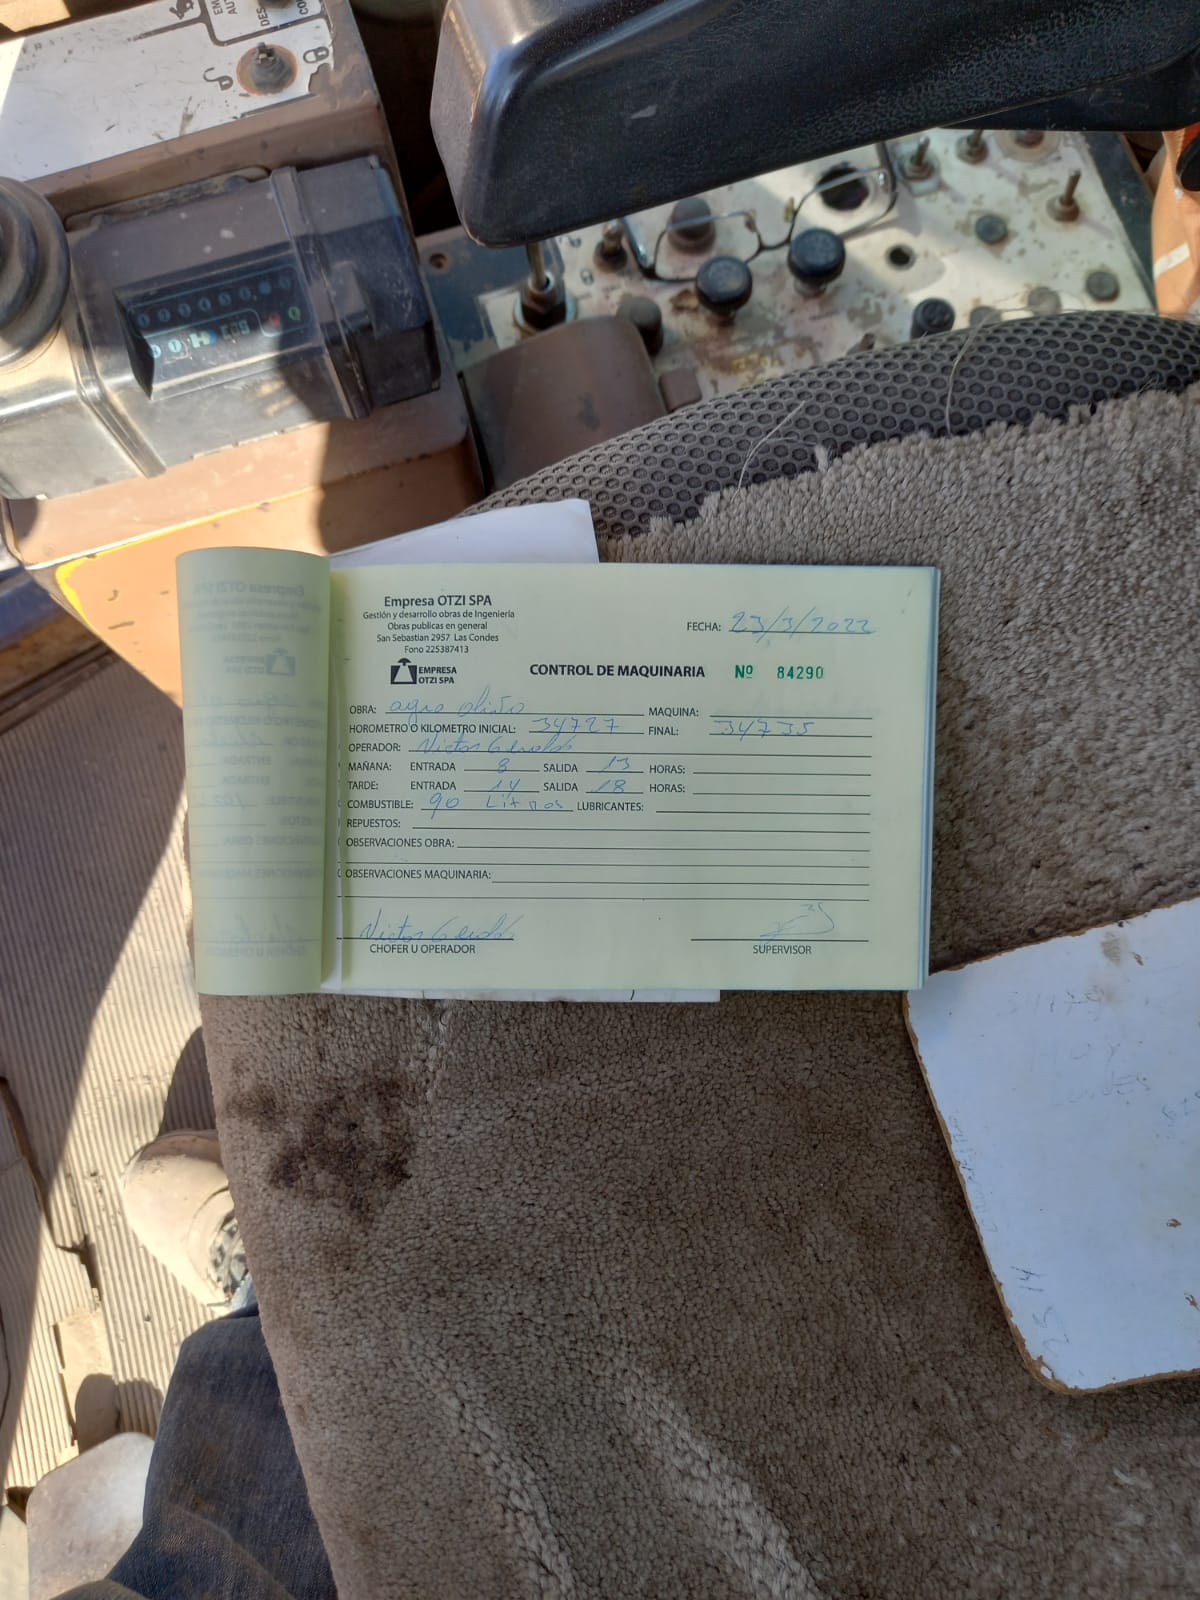 Empresa OTZI SPA
Gestión y desarrollo obras de Ingeniería
Obras publicas en general
San Sebastian 2957 Las Condes
Fono 225387413
FECHA: 23/3/2022
EMPRESA
OTZI SPA
CONTROL DE MAQUINARIA Nº 84290
OBRA: agro olivo MAQUINA:
HOROMETRO O KILOMETRO INICIAL: 34727 FINAL: 34735
OPERADOR: Victor
MAÑANA: ENTRADA 8 SALIDA 13 HORAS:
TARDE: ENTRADA 14 SALIDA 18 HORAS:
COMBUSTIBLE: 90 Litros LUBRICANTES:
REPUESTOS:
OBSERVACIONES OBRA:
OBSERVACIONES MAQUINARIA:
Victor
CHOFER U OPERADOR
SUPERVISOR